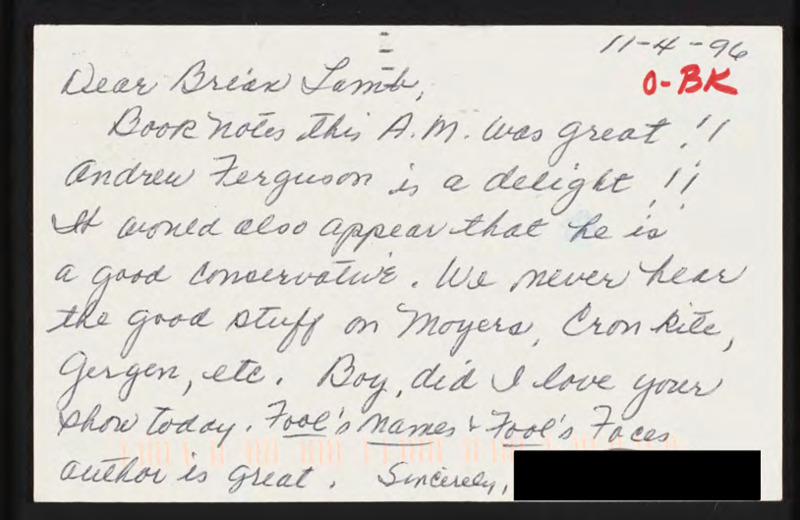 11-4-96
O-BK
Dear Brian Lamb,
Book notes this A.M. was great!!
Andrew Ferguson is a delight!!
It would also appear that he is
a good conservative. We never hear
the good stuff on Moyers, Cronkite,
Gergen, etc. Boy, did I love your
show today. Fool's Names & Fool's Faces
author is great. Sincerely,